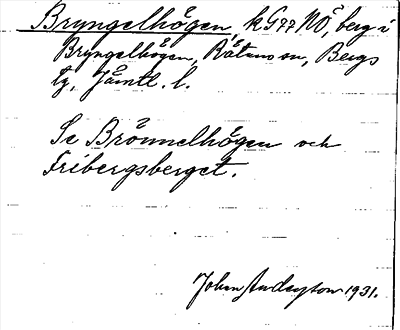 Bryngelhögen, k G77 NÖ, berg i
Bryngelhögen, Rätans sn, Bergs
tg, Jämtl. l.
Se Brönnelhögen och
Fribergsberget.
Johan Anderson 1931.